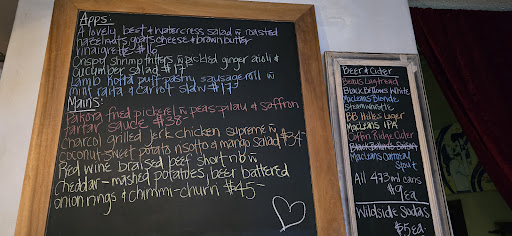 Apps:
A lovely beet & watercress salad w roasted
hazelnuts, goats cheese & brown butter
vinaigrette $16
Crispy shrimp fritters w pickled ginger aioli &
cucumber salad $17
Lamb kofta puff pastry sausage roll w
mint raita & carrot slaw $17
Mains:
Pakora fried pickerel w peas pilau & saffron
tartar sauce $38-
Charcol grilled jerk chicken supreme w
coconut sweet potato risotto & mango salad $34-
Red wine braised beef short rib w
cheddar-mashed potatoes, beer battered
onion rings & chimmi-churri $45-
Beer & Cider
Beaus Lugtread
Black Bellows White
Macleans Blonde
Steamwhistle
Macleans IPA
Coffin Ridge Cider
Macleans Oatmeal
Stout
All 473ml cans
$9 ea
Wildside Sodas
$5 ea.